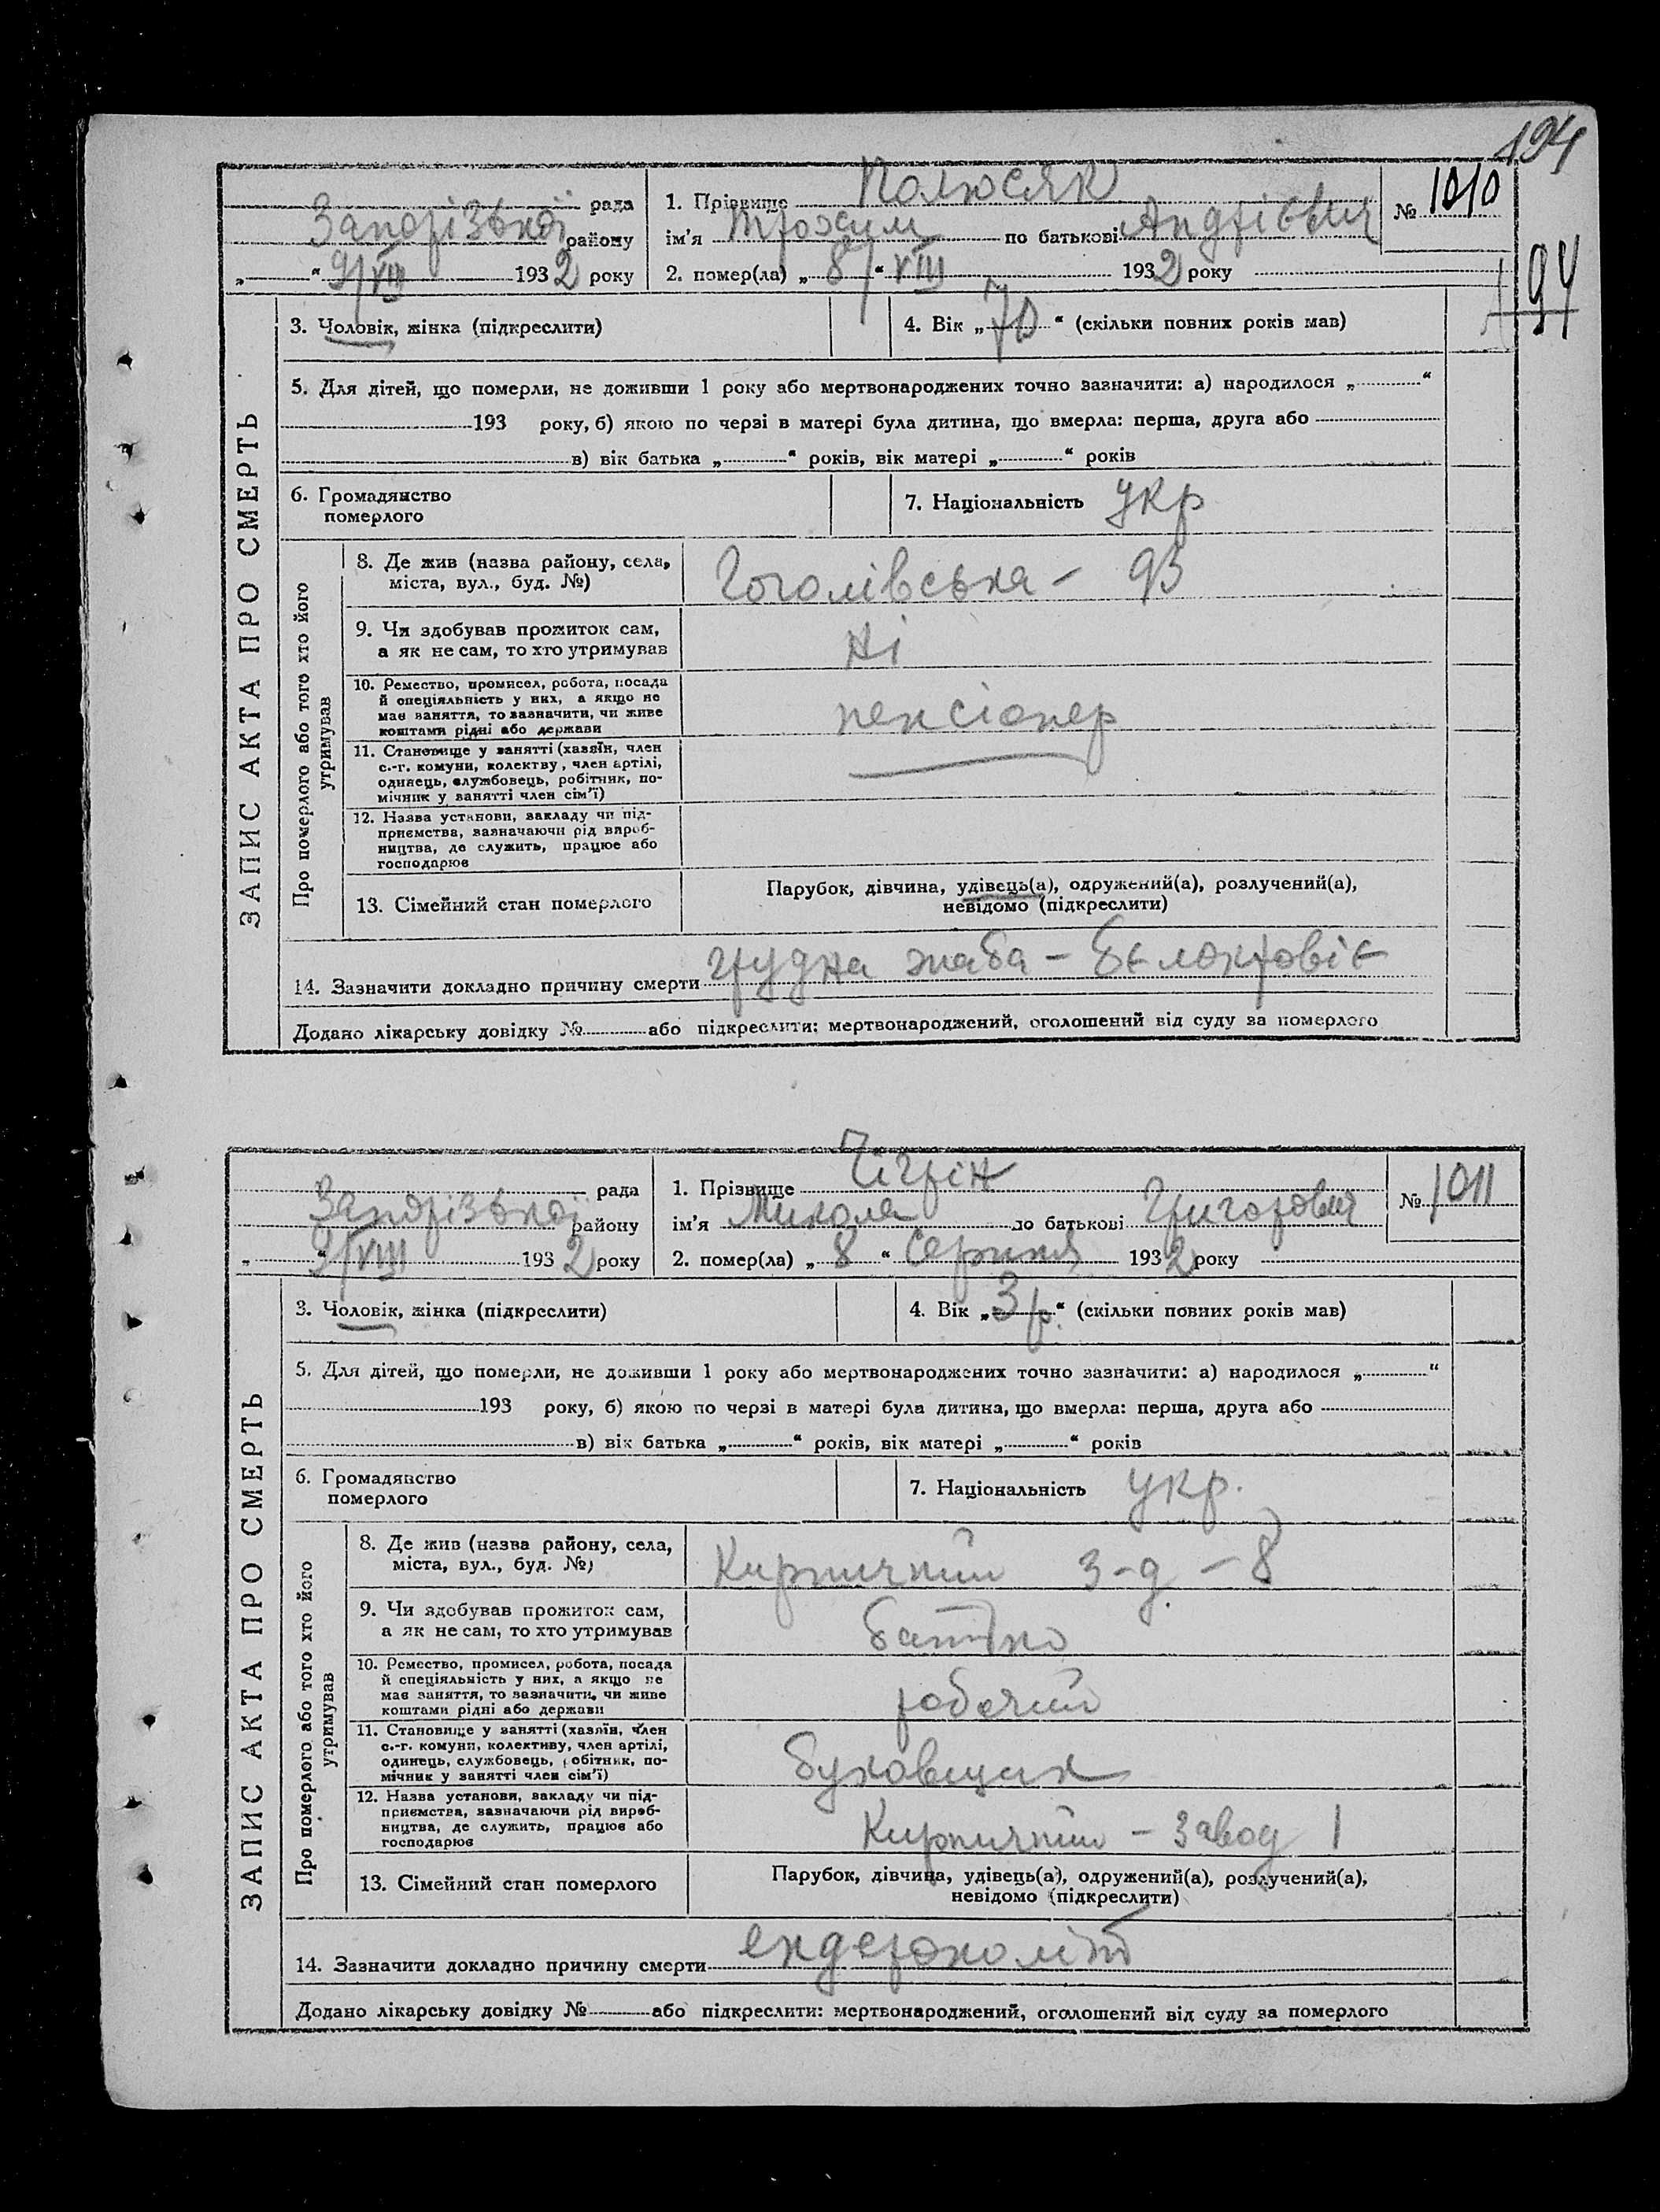 194
Полюсяк
рада 1. Прізвище
№ 1010
Запорізької району ім'я Трохим по батькові Андрієвич
„ “ 9/VIII 1932 року 2. помер(ла) „ 8 “ VIII 1932 року
194
3. Чоловік, жінка (підкреслити) 4. Вік „ 70 “ (скільки повних років мав)
5. Для дітей, що померли, не доживши 1 року або мертвонароджених точно зазначити: а) народилося „ “
193 року, б) якою по черзі в матері була дитина, що вмерла: перша, друга або
в) вік батька „ “ років, вік матері „ “ років
6. Громадянство
померлого
7. Національність укр
ЗАПИС АКТА ПРО СМЕРТЬ
Про померлого або того хто його
утримував
8. Де жив (назва району, села,
міста, вул., буд. №)
Гоголівська – 93
9. Чи здобував прожиток сам,
а як не сам, то хто утримував
Ні
10. Ремество, промисел, робота, посада
й спеціяльність у них, а якщо не
має заняття, то зазначити, чи живе
коштами рідні або держави
пенсіонер
11. Становище у занятті (хазяїн, член
с.-г. комуни, колектву, член артілі,
одинець, службовець, робітник, по-
мічник у занятті член сім'ї)
12. Назва установи, закладу чи під-
приємства, зазначаючи рід вироб-
ництва, де служить, працює або
господарює
13. Сімейний стан померлого
Парубок, дівчина, удівець(а), одружений(а), розлучений(а),
невідомо (підкреслити)
14. Зазначити докладно причину смерти грудна жаба –
Додано лікарську довідку № або підкреслити: мертвонароджений, оголошений від суду за померлого
Чігрін
рада 1. Прізвище
№ 1011
Запорізької району ім'я Микола по батькові Григорович
„ “ 9/VIII 1932 року 2. помер(ла) „ 8 “ Серпня 1932 року
3. Чоловік, жінка (підкреслити) 4. Вік „ 3 р. “ (скільки повних років мав)
5. Для дітей, що померли, не доживши 1 року або мертвонароджених точно зазначити: а) народилося „ “
193 року, б) якою по черзі в матері була дитина, що вмерла: перша, друга або
в) вік батька „ “ років, вік матері „ “ років
6. Громадянство
померлого
7. Національність укр.
ЗАПИС АКТА ПРО СМЕРТЬ
Про померлого або того хто його
утримував
8. Де жив (назва району, села,
міста, вул., буд. №)
Кирпичний з-д. – 8
9. Чи здобував прожиток сам,
а як не сам, то хто утримував
батько
10. Ремество, промисел, робота, посада
й спеціяльність у них, а якщо не
має заняття, то зазначити, чи живе
коштами рідні або держави
робочий
11. Становище у занятті (хазяїн, член
с.-г. комуни, колективу, член артілі,
одинець, службовець, робітник, по-
мічник у занятті член сім'ї)
12. Назва установи, закладу чи під-
приємства, зазначаючи рід вироб-
ництва, де служить, працює або
господарює
Кирпичний – завод 1
13. Сімейний стан померлого
Парубок, дівчина, удівець(а), одружений(а), розлучений(а),
невідомо (підкреслити)
14. Зазначити докладно причину смерти ендероколіт
Додано лікарську довідку № або підкреслити: мертвонароджений, оголошений від суду за померлого